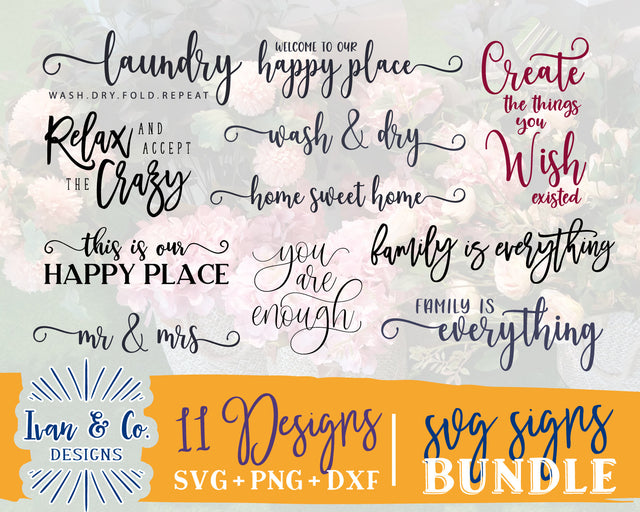 laundry
WASH.DRY.FOLD.REPEAT
WELCOME TO OUR
happy place
Create
the things
you
Wish
existed
Relax AND
ACCEPT
THE Crazy
wash & dry
home sweet home
this is our
HAPPY PLACE
you
are
enough
family is everything
mr & mrs
FAMILY IS
everything
Ivan & Co.
DESIGNS
11 Designs
SVG+PNG+DXF
svg signs
BUNDLE